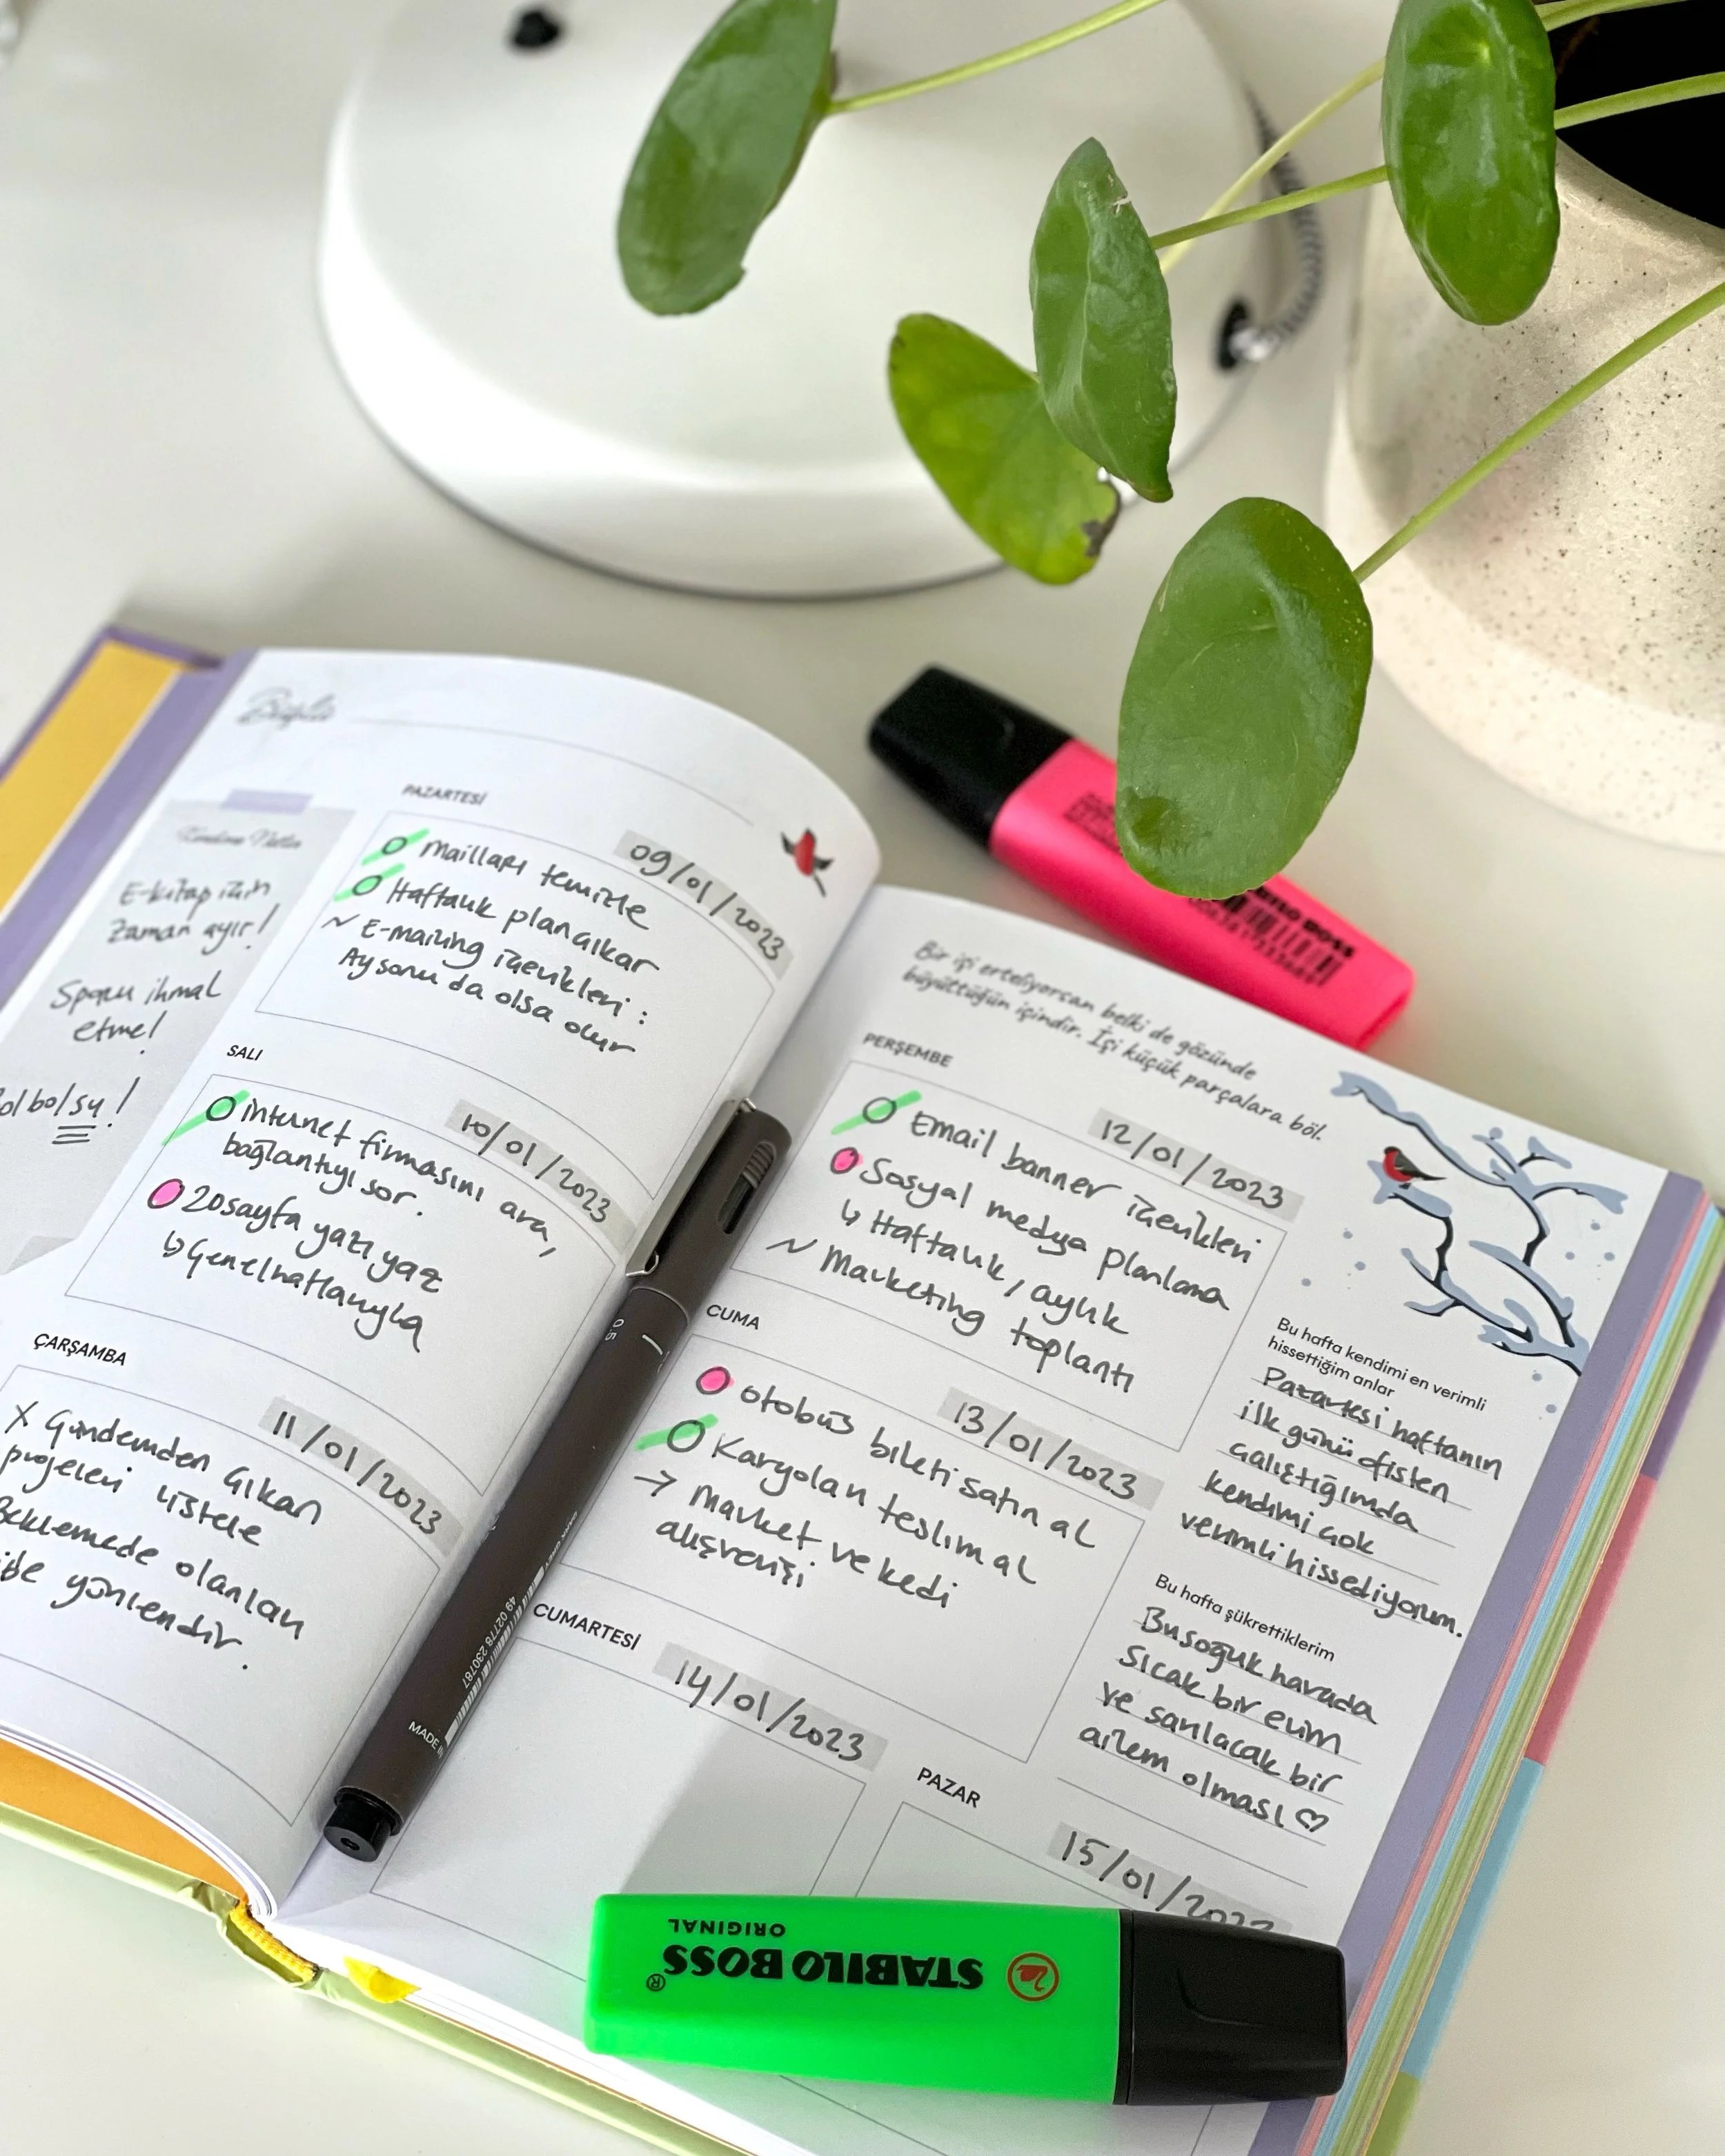 PAZARTESİ
09/01/2023
Mailları temizle
Haftalık plan çıkar
~ E-mailing içerikleri :
Ay sonu da olsa olur
Kendime Notlar
E-kitap için
zaman ayır!
Sporu ihmal
etme!
bol su!
SALI
10/01/2023
internet firmasını ara,
bağlantıyı sor.
20 sayfa yazı yaz
↳ Genel hatlarıyla
ÇARŞAMBA
11/01/2023
X Gündemden çıkan
projeleri listele
Beklemede olanları
yönlendir.
Bir işi erteliyorsan belki de gözünde
büyüttüğün içindir. İşi küçük parçalara böl.
PERŞEMBE
12/01/2023
Email banner içerikleri
Sosyal medya planlama
↳ Haftalık, aylık
~ Marketing toplantı
CUMA
13/01/2023
otobüs bileti satın al
Karyolan teslim al
→ Market ve kedi
alışverişi
CUMARTESİ
14/01/2023
PAZAR
15/01/2023
Bu hafta kendimi en verimli
hissettiğim anlar
Pazartesi haftanın
ilk günü ofisten
çalıştığımda
kendimi çok
verimli hissediyorum.
Bu hafta şükrettiklerim
Bu soğuk havada
sıcak bir evim
ve sarılacak bir
ailem olması ♡
0.5
MADE IN
49 02778 230787
STABILO BOSS
ORIGINAL
STABILO BOSS